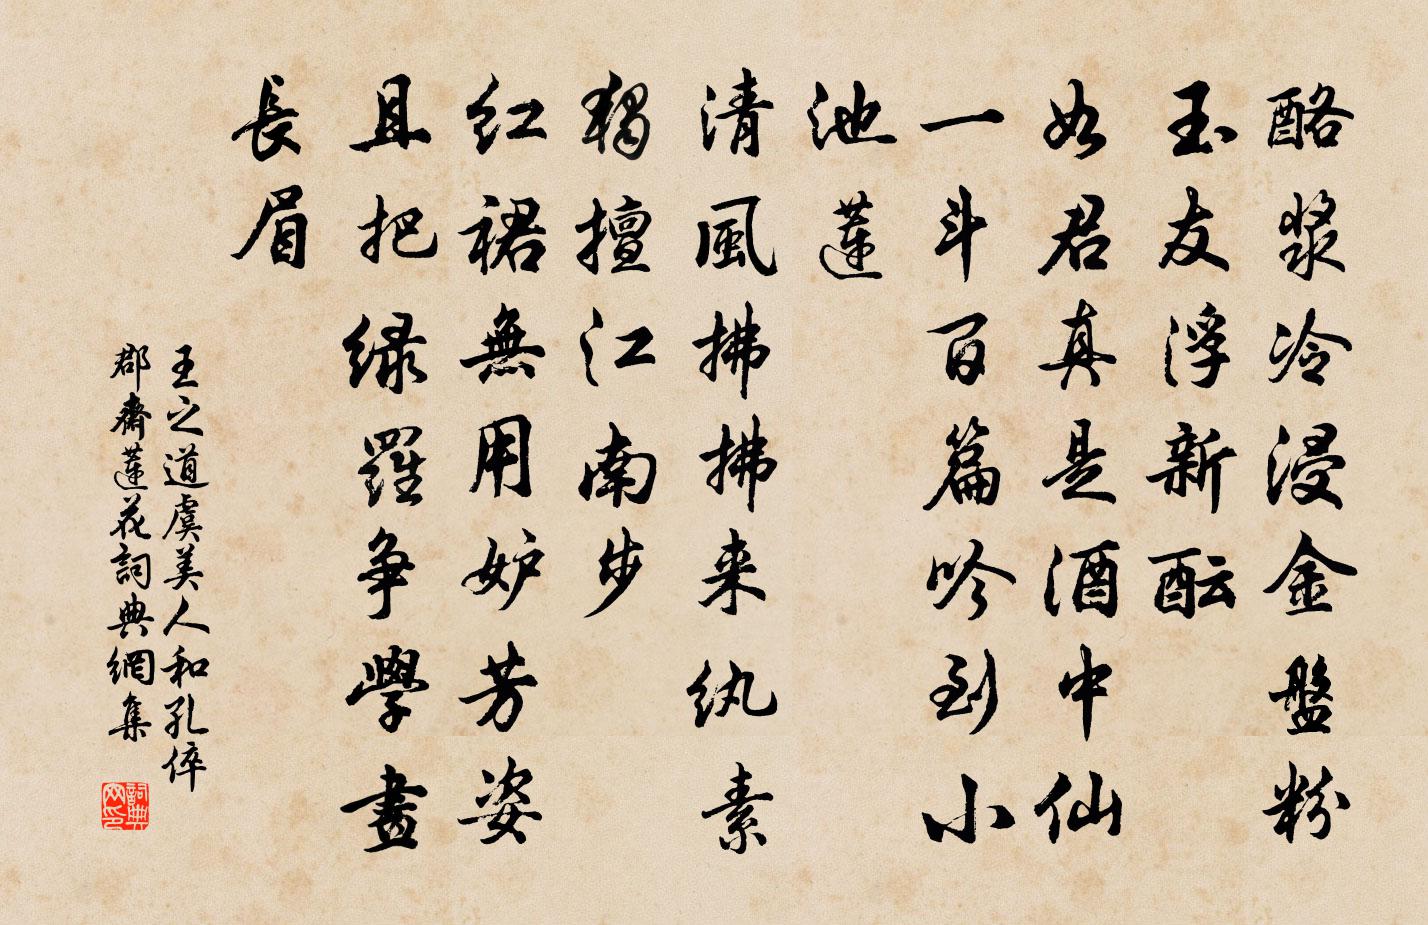 酪漿冷浸金盤粉
玉友浮新酝
如君真是酒中仙
一斗百篇吟到小
池蓮
清風拂拂来纨素
獨擅江南步
红裙無用妒芳姿
且把绿羅争學畫
長眉
王之道虞美人和孔倅
郡齋蓮花詞典網集
詞典网印